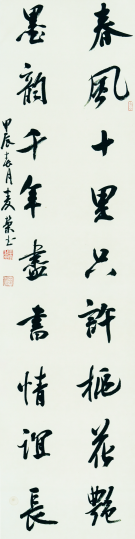 春風十里只許桃花艷
墨韻千年盡書情誼長
甲辰春月夌荣书